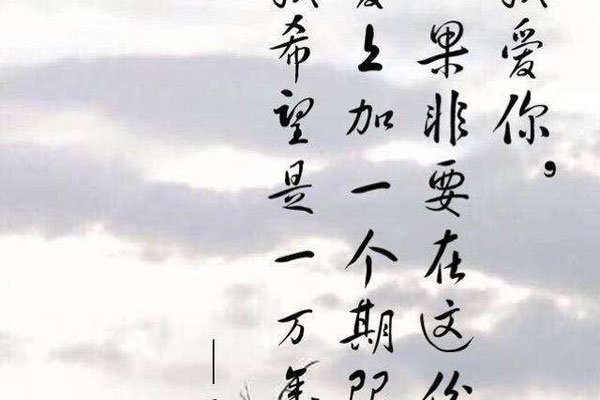 爱你，
果非要在这份
上加一个期
希望是一万年